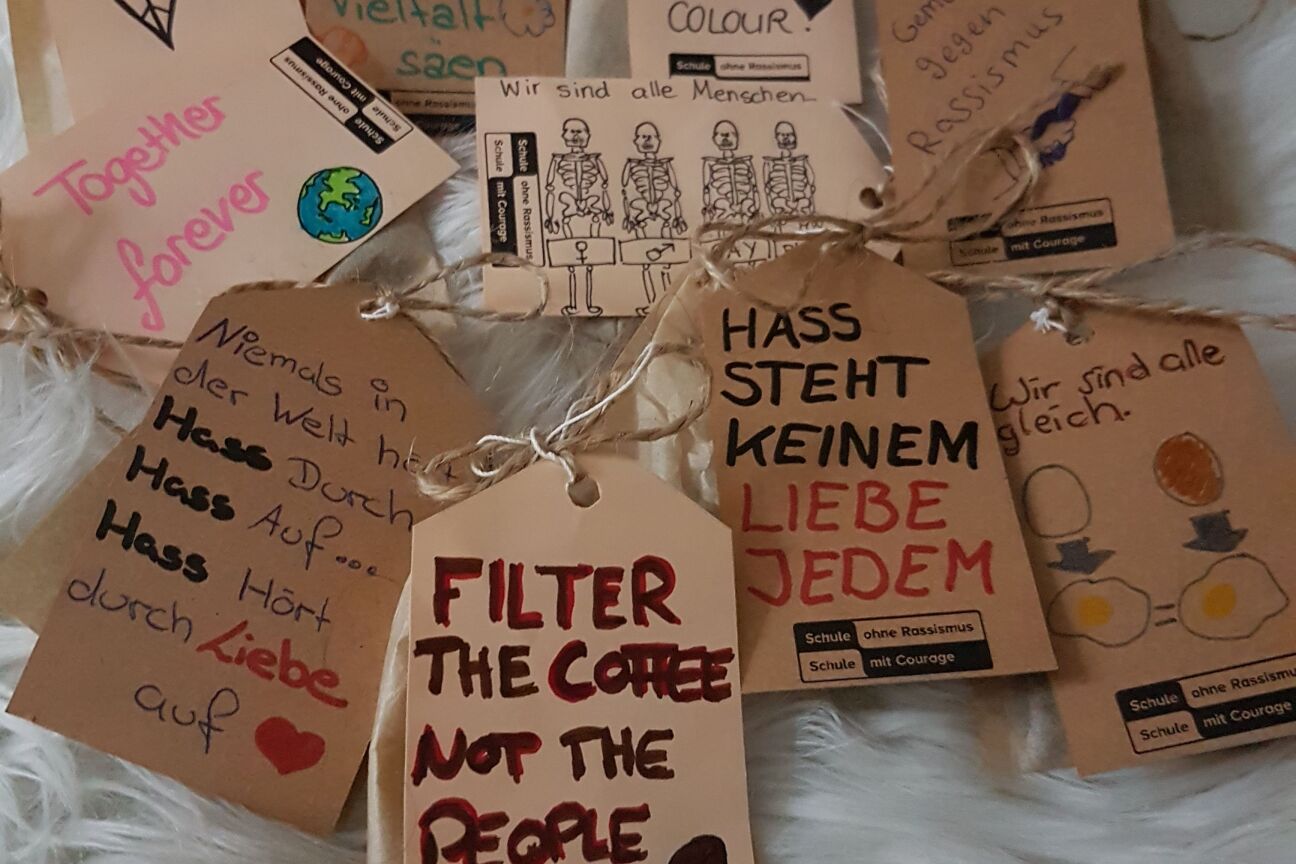 Vielfalt
säen
ohne Rassismus
COLOUR!
Schule ohne Rassismus
Gem
gegen
Rassismus
ohne Rassismus
Schule mit Courage
Together
forever
Schule ohne Rassismus
Schule mit Courage
Wir sind alle Menschen
Schule ohne Rassismus
Schule mit Courage
♀ ♂ AY
Niemals in
der Welt h t
Hass Durch
Hass Auf...
Hass Hört
durch Liebe
auf ♥
FILTER
THE COFFEE
NOT THE
PEOPLE
HASS
STEHT
KEINEM
LIEBE
JEDEM
Schule ohne Rassismus
Schule mit Courage
Wir sind alle
gleich.
=
Schule ohne Rassismu
Schule mit Courage